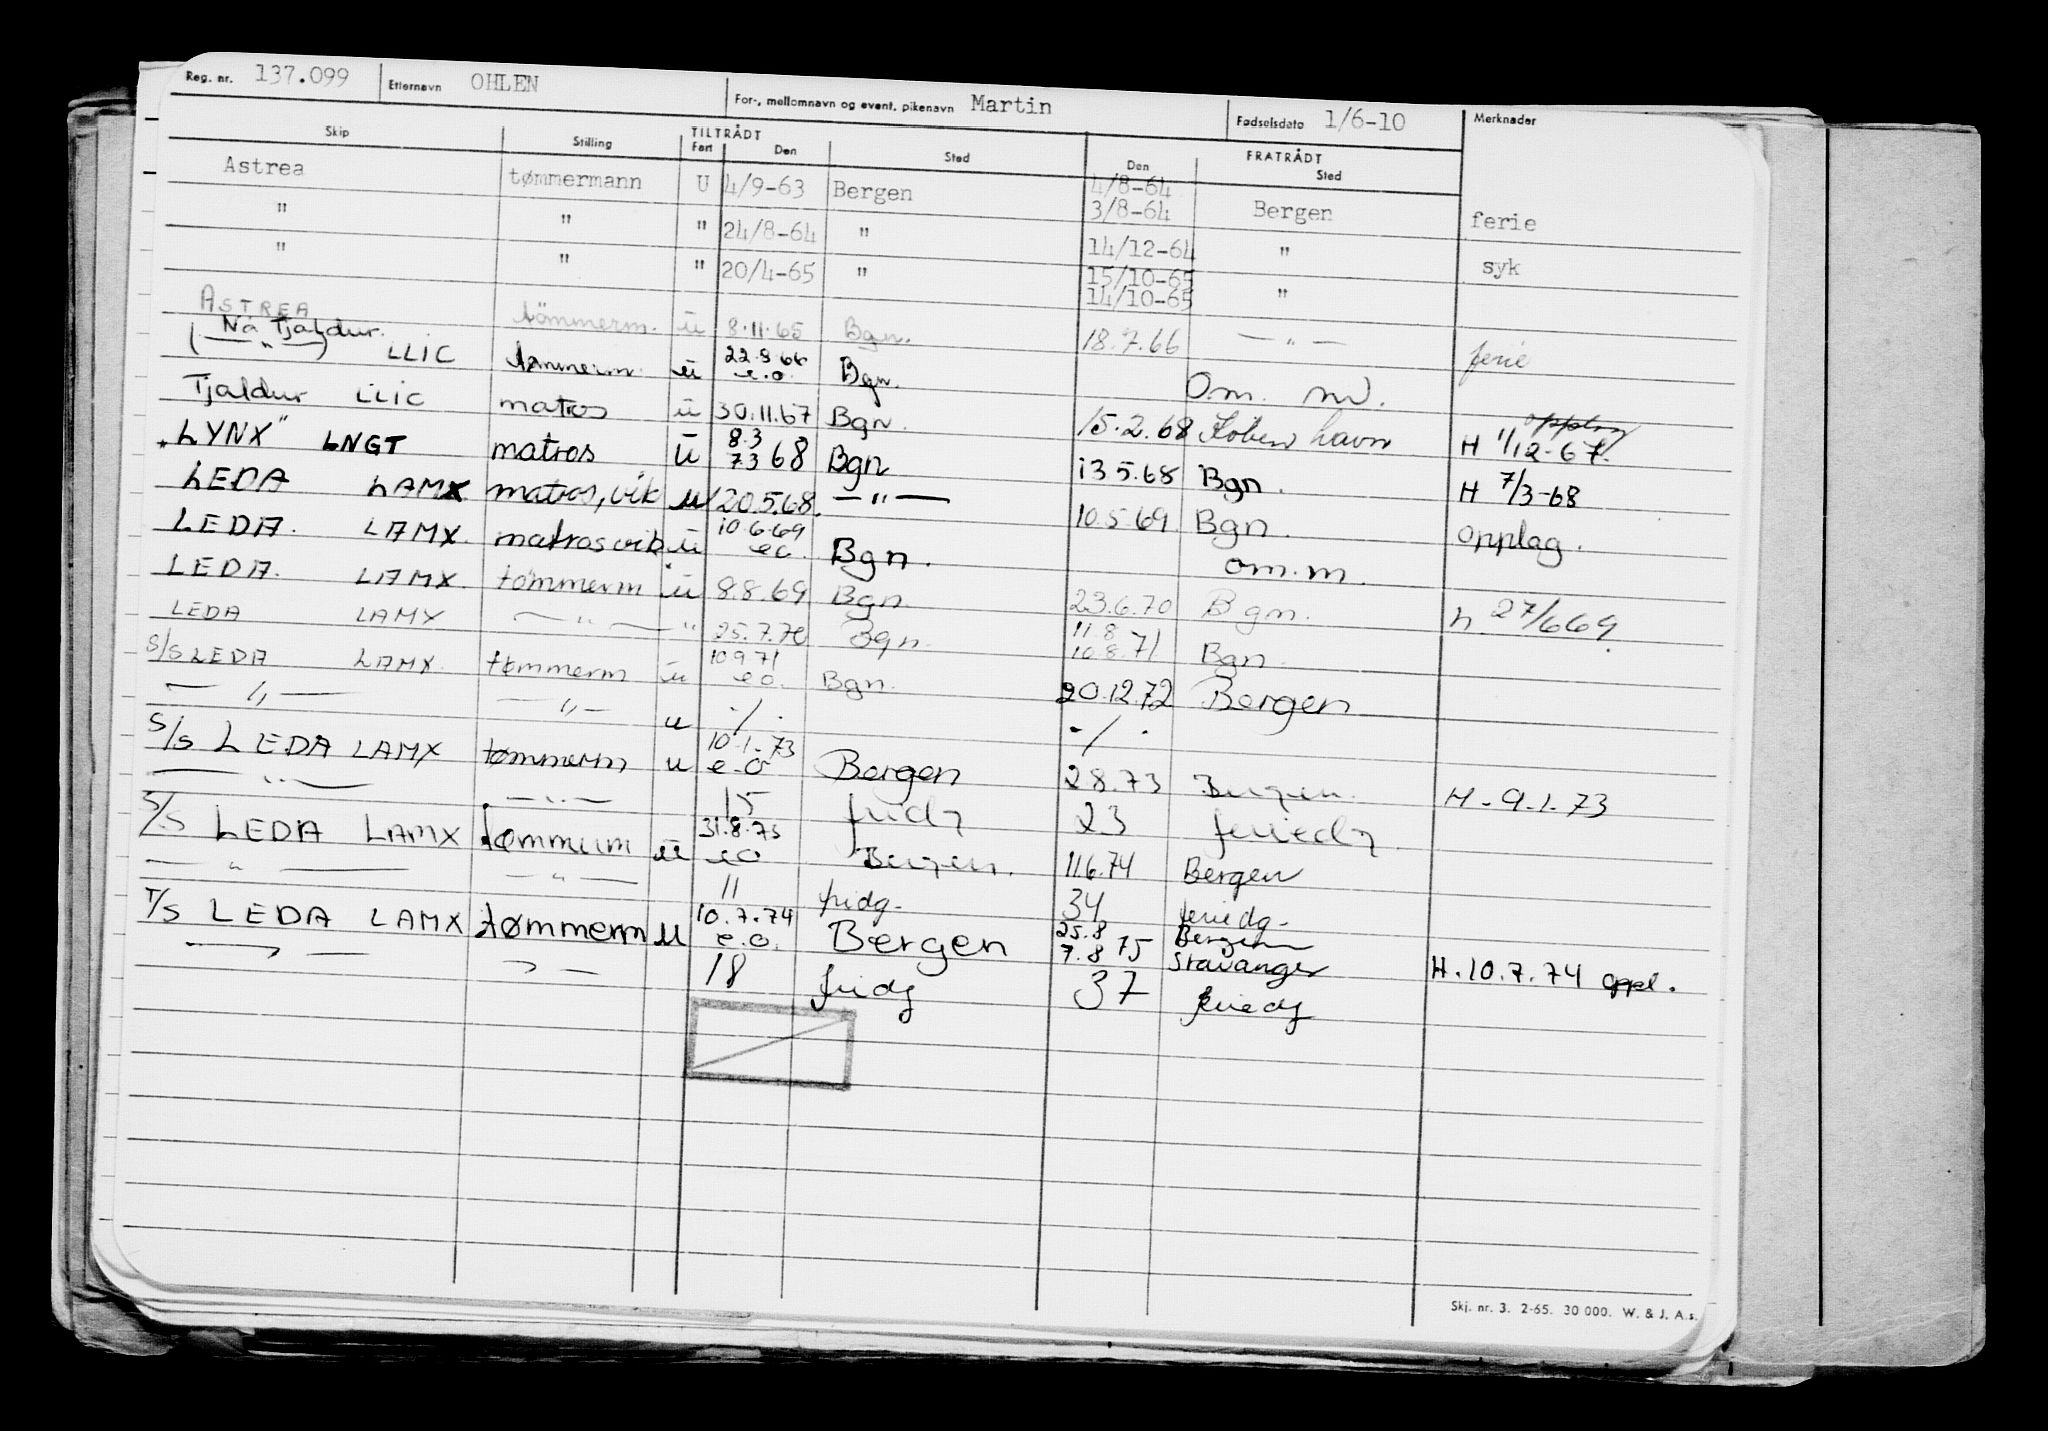 Reg. nr. 137.099 Etternavn OHLEN For-, mellomnavn og event. pikenavn Martin Fødselsdato 1/6-10 Merknader
Skip Stilling TILTRÅDT Fart Den Sted FRATRÅDT Den Sted
Astrea tømmermann U 4/9-63 Bergen 4/8-64
3/8-64 Bergen ferie
" " " 24/8-64 " 14/12-64 " syk
" " " 20/4-65 " 15/10-65
14/10-65 "
ASTREA tömmerm. ü 8.11.65 Bgn. 18.7.66 — " — ferie
Nå Tjaldur.
(— " —) LLIC tømmerm. ü 22.8.66 e.o. Bgn. Om. m.
Tjaldur LLIC matros ü 30.11.67 Bgn. 15.2.68 København opplag H 1/12-67.
"LYNX" LNGT matros ü 8.3 7.3 68 Bgn 13.5.68 Bgn. H 7/3-68
LEDA LAMX matros, vik u 20.5.68. — " — 10.5.69. Bgn. opplag.
LEDA. LAMX. matros vik ü 10.6.69 eo. Bgn. om.m.
LEDA. LAMX. tömmerm ü 8.8.69 Bgn 23.6.70 Bgn. h. 27/669.
LEDA LAMX — " — " 25.7.70 Bgn. 11.8 10.8.71 Bgn.
S/S LEDA LAMX. tømmerm ü 10.9.71 eo. Bgn. 20.12.72 Bergen
— " — — " — u -/- -/-
S/S LEDA LAMX tømmerm u 10.1.73 e.o Bergen 28.73 Bergen. H. 9.1.73
— " — — " — 15 fridg 23 feriedg
S/S LEDA LAMX tømmerm ü 31.8.73 eo Bergen. 11.6.74 Bergen
— " — — " — 11 fridg. 34 feriedg.
T/S LEDA LAMX tømmerm u 10.7.74 e.o. Bergen 25.8 Bergen
7.8 75 Stavanger H. 10.7.74 oppl.
— " — — " — 18 fridg 37 feriedg
Skj. nr. 3. 2-65. 30 000. W. & J. A.s.